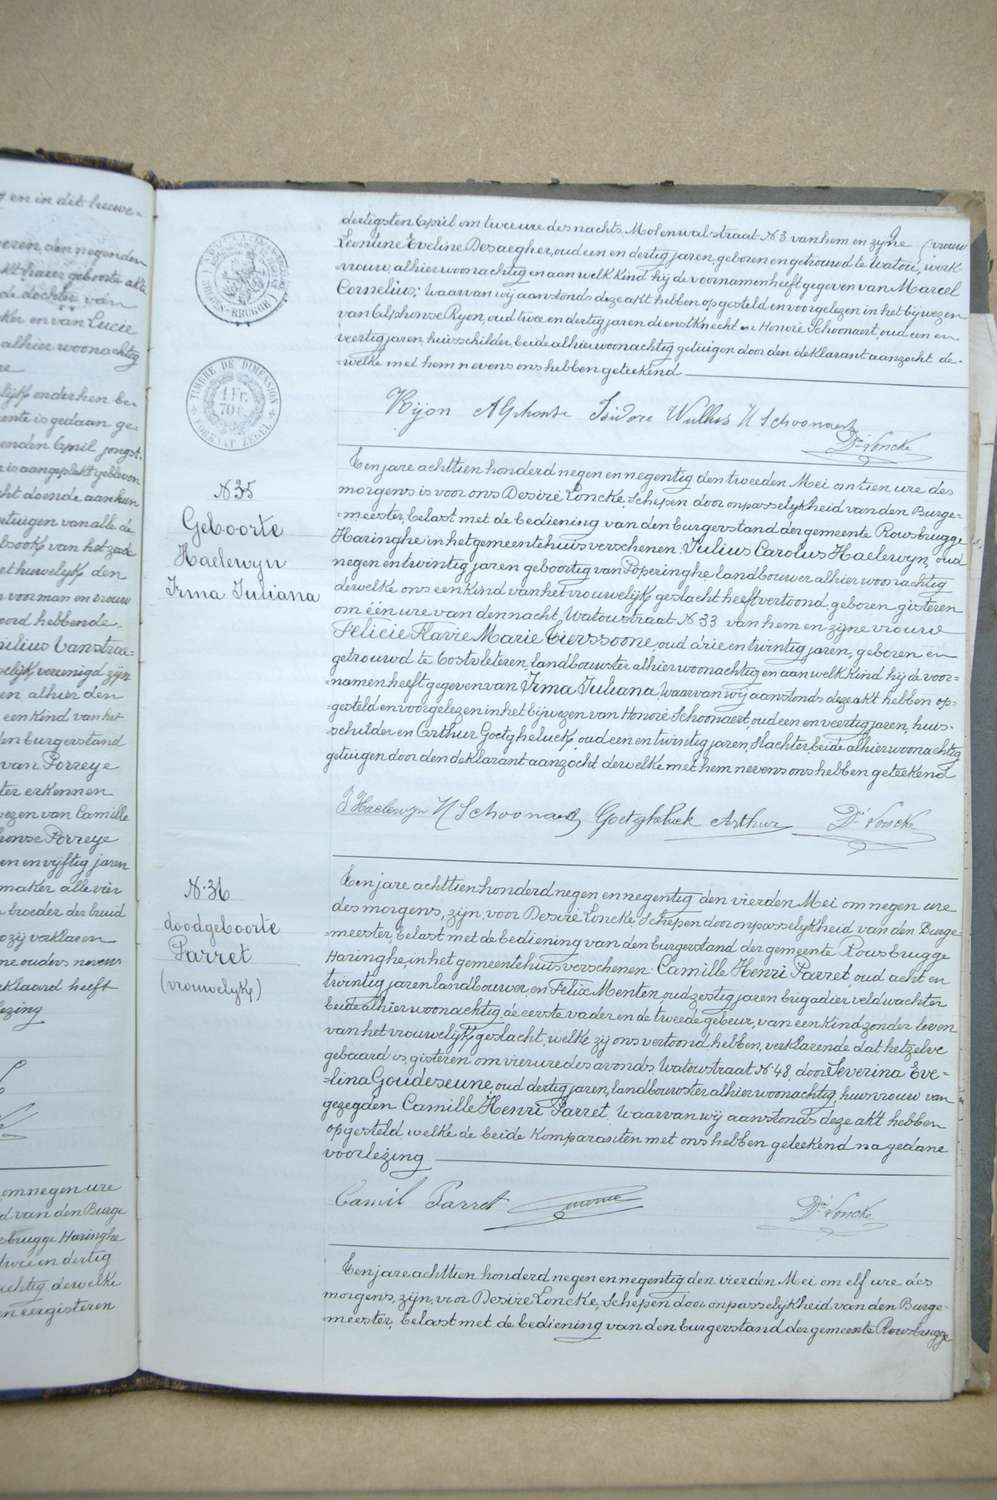 en in dit leuve-
eren den negenden
de dochter van
ker en van Lucie
alhier woonachtig
lijk onderhen be-
ente is gedaan ge-
enden April jongst-
is aangeplakt gebleven
cht doende aan hun
etuigen van alle de
dboek van het zesde
et huwelijk den
voor man en vrouw
oord hebbende
selijk vereenigd zijn
en alhier den
een kind van het
den burgerstand
van Porreye
ter erkennen
ezen van Camille
honse Porreye
en en vijftig jaren
maker alle vier
broeder der bruid
zij verklaren
ne ouders nevens
klaard heeft
lezing
om negen ure
d van den Burge
sbrugge Haringhe
twee en dertig
achtig dewelke
en eergisteren
TIMBRE DE DIMENSION
1 Fr.
70 c.
FORMAAT ZEGEL
9
dertigsten April om twee ure des nachts, Molenwalstraat N 3 van hem en zijne vrouw
Leontine Eveline Desaegher, oud een en dertig jaren, geboren en getrouwd te Watou, werk-
vrouw, alhier woonachtig en aan welk kind hij de voornamen heeft gegeven van Marcel
Cornelius; Waarvan wij aanstonds deze akt hebben opgesteld en voorgelezen in het bijwezen
van Alphonse Ryon, oud twee en dertig jaren dienstknecht en Honoré Schoonaert, oud een en
veertig jaren, huisschilder, beide alhier woonachtig getuigen door den deklarant aanzocht de-
welke met hem nevens ons hebben geteekend
Rijon Alphonse Isidore Wulles H Schoonaert
Dré Loncke
N 35
Geboorte
Haelewyn
Irma Juliana
Ten jare achttien honderd negen en negentig den tweeden Mei om tien ure des
morgens is voor ons Desiré Loncke, Schepen door onpasselijkheid van den Burge-
meester, belast met de bediening van den burgerstand der gemeente Rousbrugge
Haringhe in het gemeentehuis verschenen, Julius Carolus Haelewyn, oud
negen en twintig jaren geboortig van Poperinghe landbouwer alhier woonachtig
dewelke ons een kind van het vrouwelijk geslacht heeft vertoond, geboren gisteren
om één ure van den nacht, Watoustraat N 33 van hem en zijne vrouw
Felicie Flavie Marie Tierssoone, oud drie en twintig jaren, geboren en
getrouwd te Oostvleteren, landbouwster alhier woonachtig en aan welk kind hij de voor-
namen heeft gegeven van Irma Juliana, Waarvan wij aanstonds deze akt hebben op-
gesteld en voorgelezen in het bijwezen van Honoré Schoonaert, oud een en veertig jaren, huis-
schilder en Arthur Goetgheluck, oud een en twintig jaren, slachter, beide alhier woonachtig
getuigen door den deklarant aanzocht dewelke met hem nevens ons hebben geteekend
J Haelewyn H Schoonaert Goetgheluck Arthur Dré Loncke
N. 36
doodgeboorte
Parret
(vrouwelijk)
Ten jare achttien honderd negen en negentig den vierden Mei om negen ure
des morgens, zijn, voor Desiré Loncke, Schepen door onpasselijkheid van den Burge-
meester, belast met de bediening van den burgerstand der gemeente Rousbrugge
Haringhe, in het gemeentehuis verschenen Camille Henri Parret, oud acht en
twintig jaren landbouwer, en Felix Menten, oud zestig jaren brigadier veldwachter
beide alhier woonachtig, de eerste vader en de tweede gebuur, van een kind zonder leven
van het vrouwelijk geslacht, welke zij ons vertoond hebben, verklarende dat hetzelve
gebaard is, gisteren om vier ure des avonds, Watoustraat N 48, door Severina Eve-
lina Goudeseune, oud dertig jaren, landbouwster alhier woonachtig, huisvrouw van
gezegden Camille Henri Parret. Waarvan wij aanstonds deze akt hebben
opgesteld, welke de beide komparanten met ons hebben geteekend na gedane
voorlezing
Camil Parret Dré Loncke
Ten jare achttien honderd negen en negentig den vierden Mei om elf ure des
morgens, zijn, voor Desiré Loncke, Schepen door onpasselijkheid van den Burge-
meester, belast met de bediening van den burgerstand der gemeente Rousbrugge